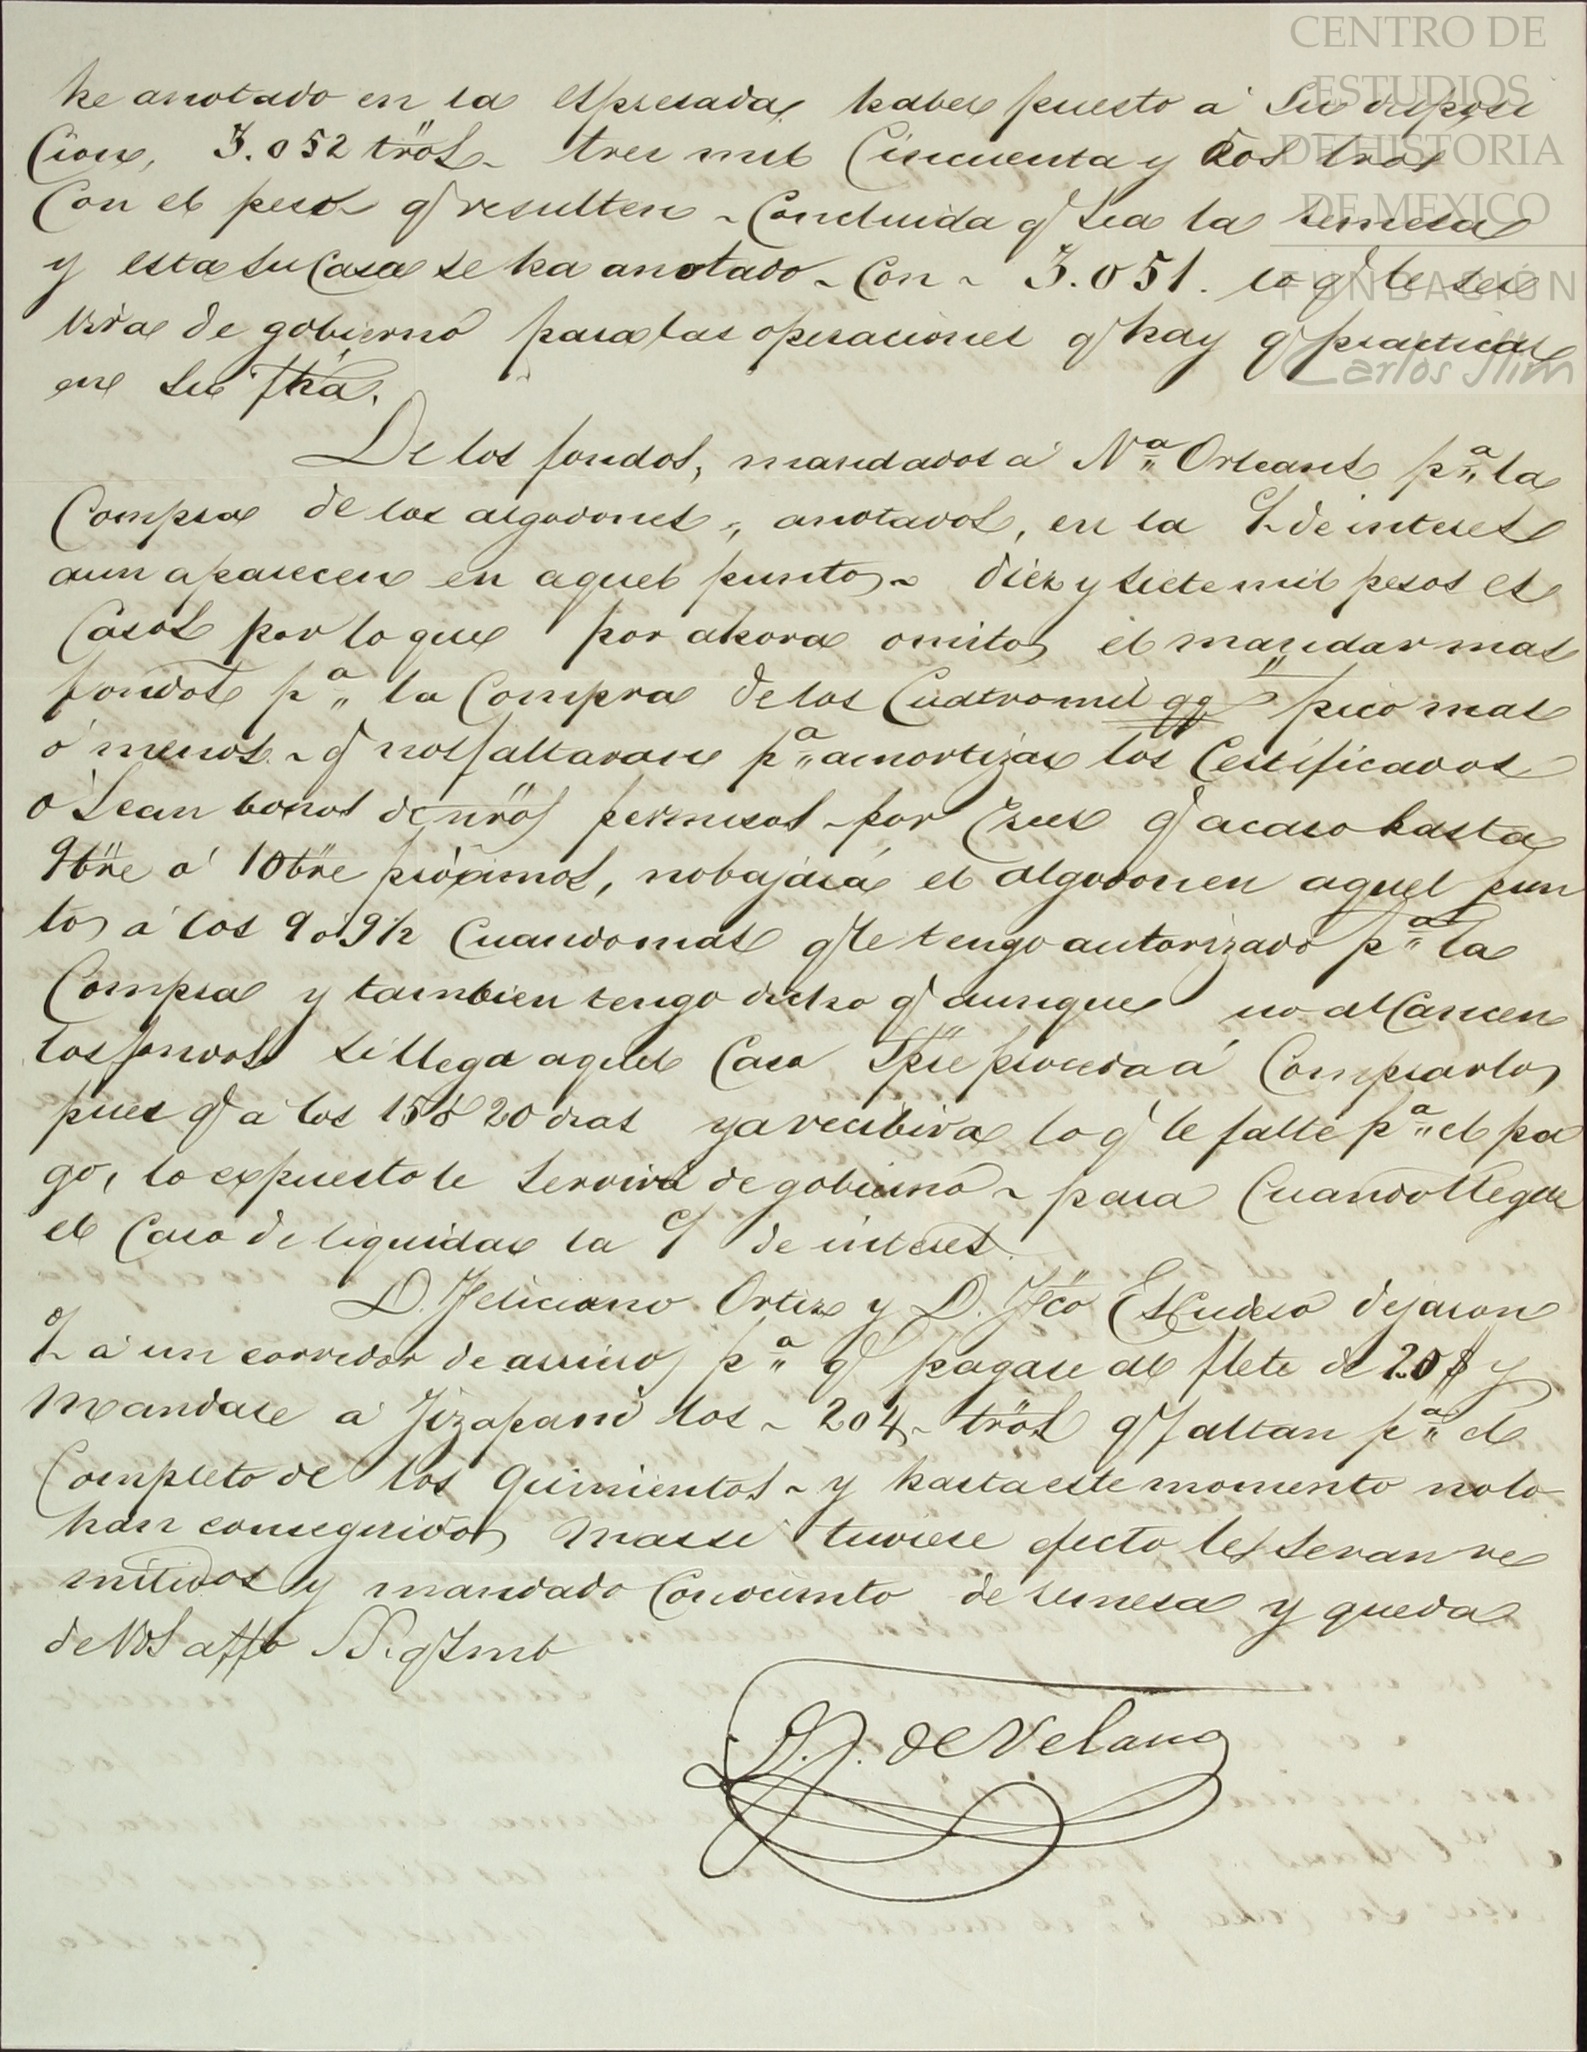 CENTRO DE
ESTUDIOS
DE HISTORIA
DE MEXICO
FUNDACIÓN
Carlos Slim
he anotado en la espresada haber puesto á su disposi
cion, 3.052 trõs - tres mil cincuenta y dos tros
con el peso q resulten - concluida q sea la remesa
y esta su casa se ha anotado - con - 3.051. lo q le ser
vira de gobierno para las operaciones q hay q practicar
en su fha.
De los fondos, mandados á Nª Orleans pª la
compra de los algodones, anotados, en la C/ de interes
aun aparecen en aquel punto - diez y siete mil pesos es
casos por lo que por ahora omito el mandar mas
fondos pª la compra de los cuatro mil qq pico mas
ó menos - q nos faltaran pª amortizar los certificados
ó sean bonos de nrõs permisos - por creer q acaso hasta
9bre ó 10bre próximos, no bajará el algodon en aquel pun
to á los 9 o 9½ cuando mas q le tengo autorizado pª la
compra y tambien tengo dicho q aunque no alcancen
los fondos si llega aquel caso spre proceda á comprarlo
pues q á los 15 ó 20 dias ya recibira lo q le falte pª el pa
go, lo expuesto le servirá de gobierno - para cuando llegue
el caso de liquidar la C/ de interes.
D. Feliciano Ortiz y D. Fco Escudero dejaron
á un corredor de arrieros pª q pagase al flete de 20 $ y
mandase á Tizapan los - 204 - trõs q faltan pª el
completo de los quinientos - y hasta este momento no lo
han conseguido mas si tuviese efecto les seran re
mitidos y mandado conocimto de remesa y queda
de Vds affo S.S. q s m b
D. J. de Velasco